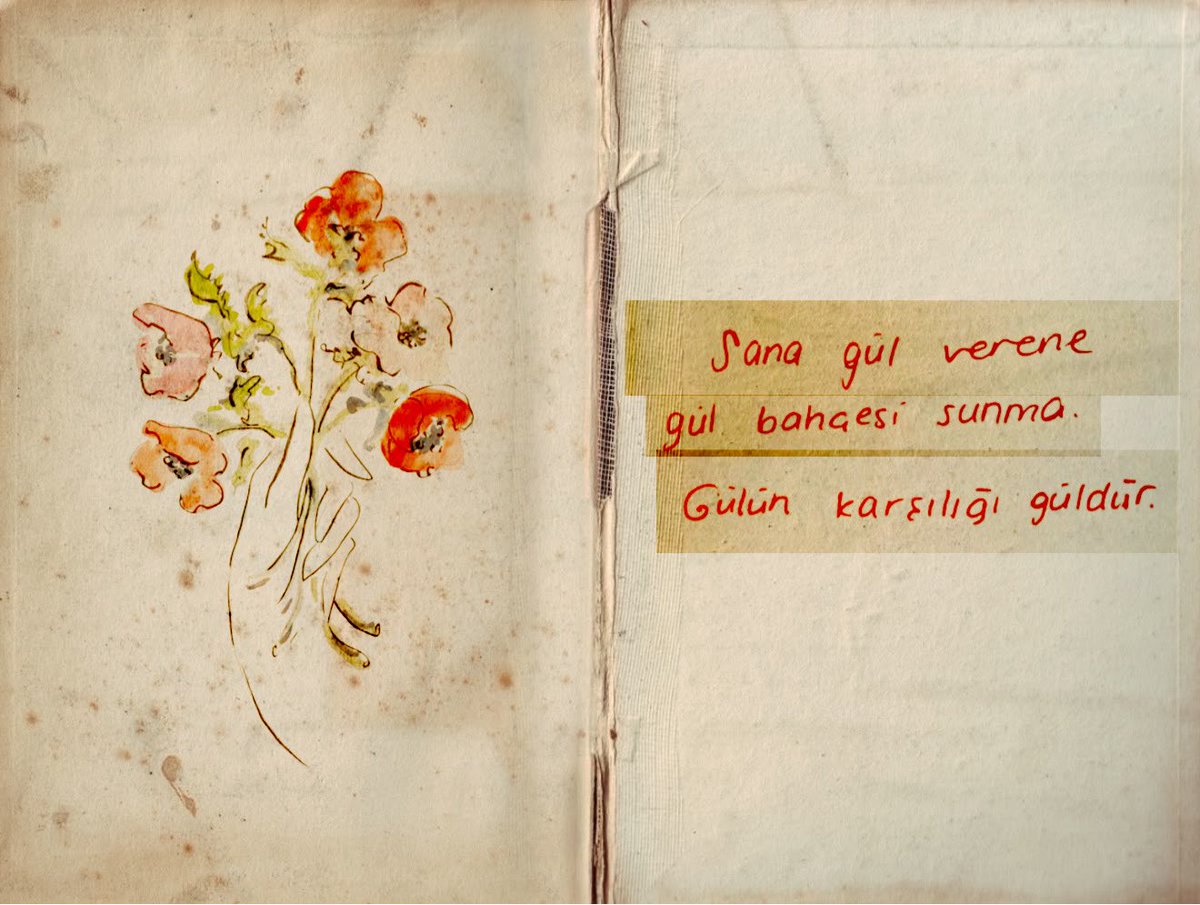 Sana gül verene
gül bahçesi sunma.
Gülün karşılığı güldür.